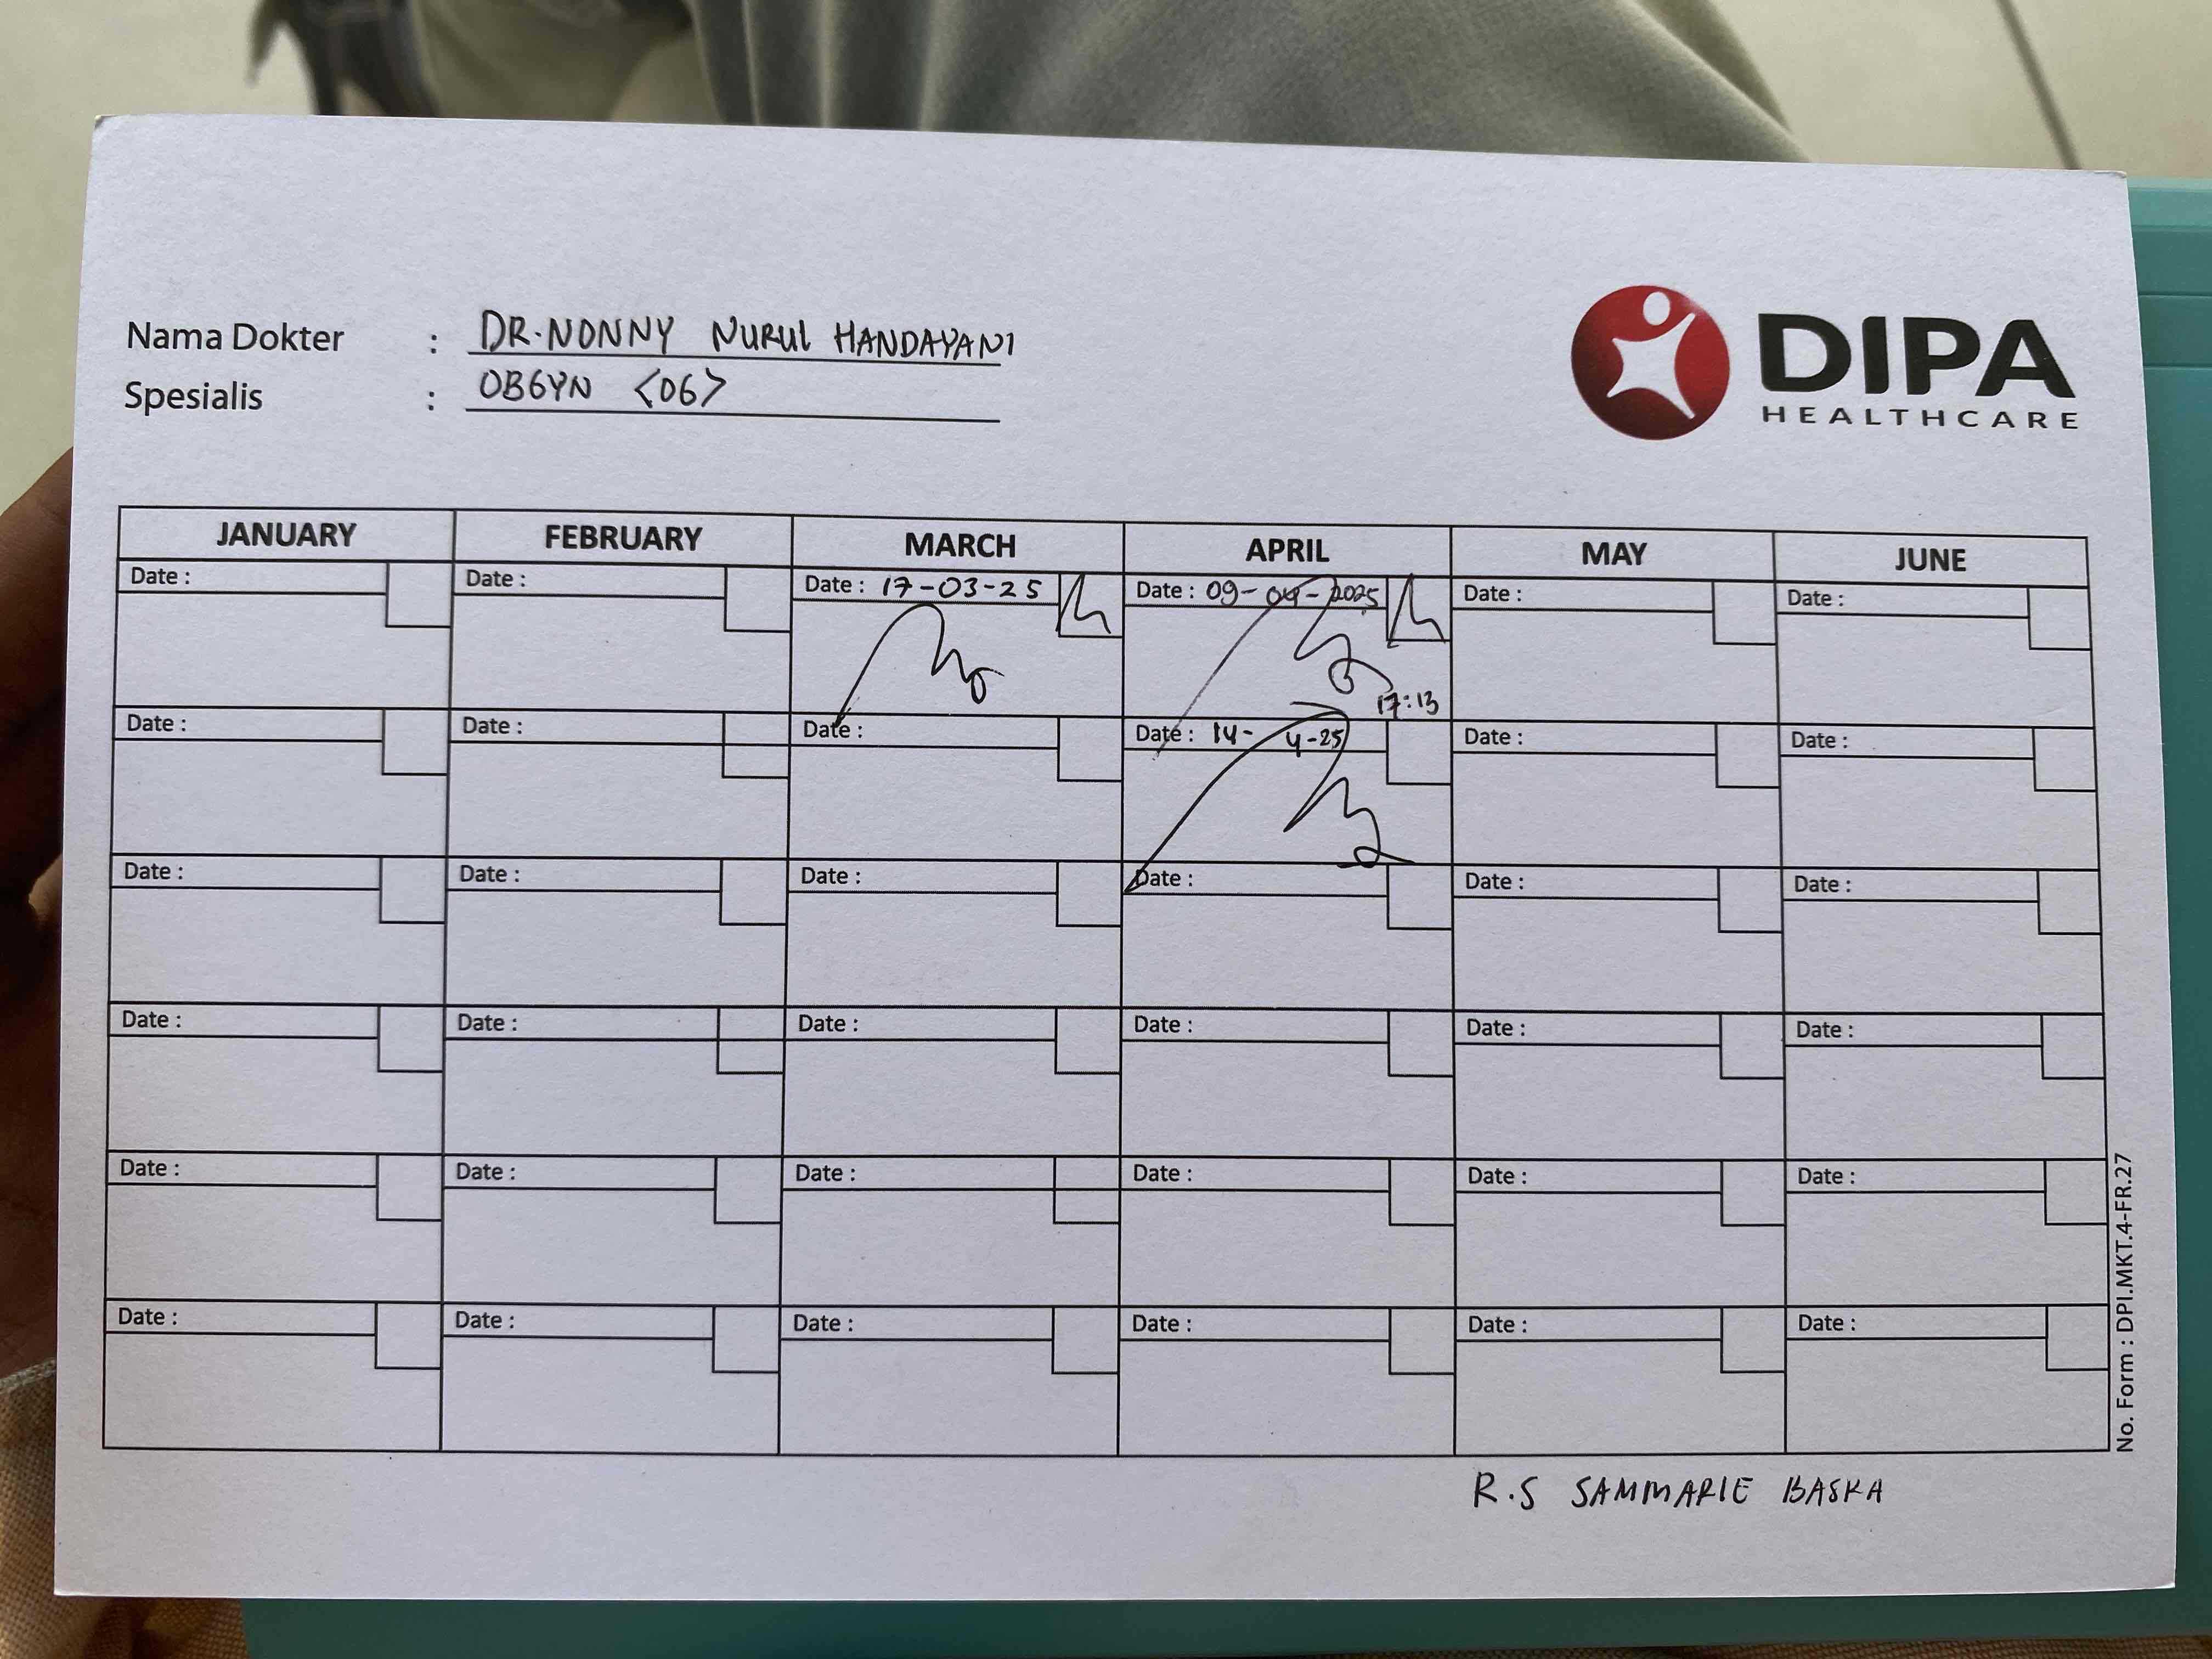 Nama Dokter : DR. NONNY NURUL HANDAYANI
Spesialis : OBGYN <OG>
DIPA
HEALTHCARE
JANUARY FEBRUARY MARCH APRIL MAY JUNE
Date : Date : Date : 17-03-25 Date : 09-04-2025 Date : Date :
17:13
Date : Date : Date : Date : 14-4-25 Date : Date :
Date : Date : Date : Date : Date : Date :
Date : Date : Date : Date : Date : Date :
Date : Date : Date : Date : Date : Date :
Date : Date : Date : Date : Date : Date :
No. Form : DPI.MKT.4-FR.27
R.S SAMMARIE BASKA